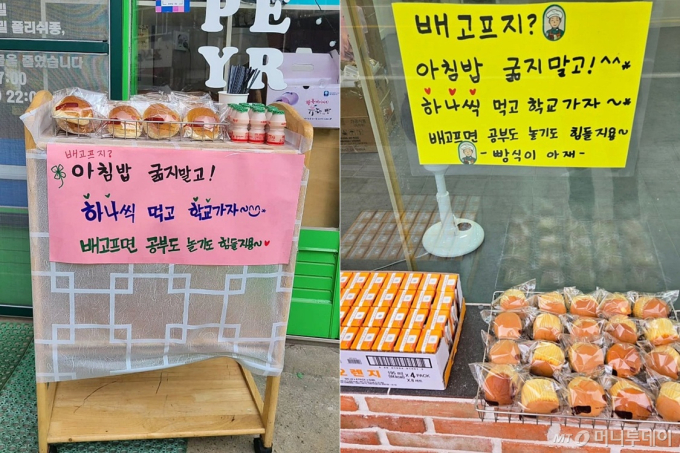 배고프지?
아침밥 굶지말고!
하나씩 먹고 학교가자~
배고프면 공부도 놀기도 힘들지용~
배고프지?
아침밥 굶지말고!^^*
하나씩 먹고 학교가자~*
배고프면 공부도 놀기도 힘들지용~
- 빵식이 아재 -
PE
YR
7:00
22:05
오렌지
x 4 PACK
MT 머니투데이